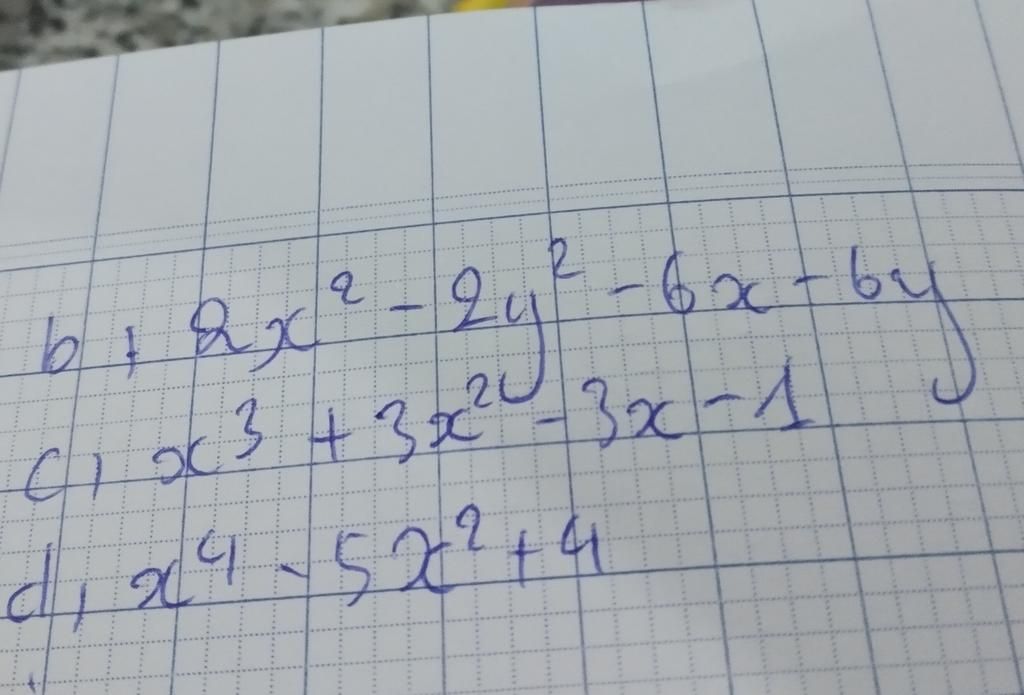 b, 2x² - 2y² - 6x - 6y
c, x³ + 3x² - 3x - 1
d, x⁴ - 5x² + 4